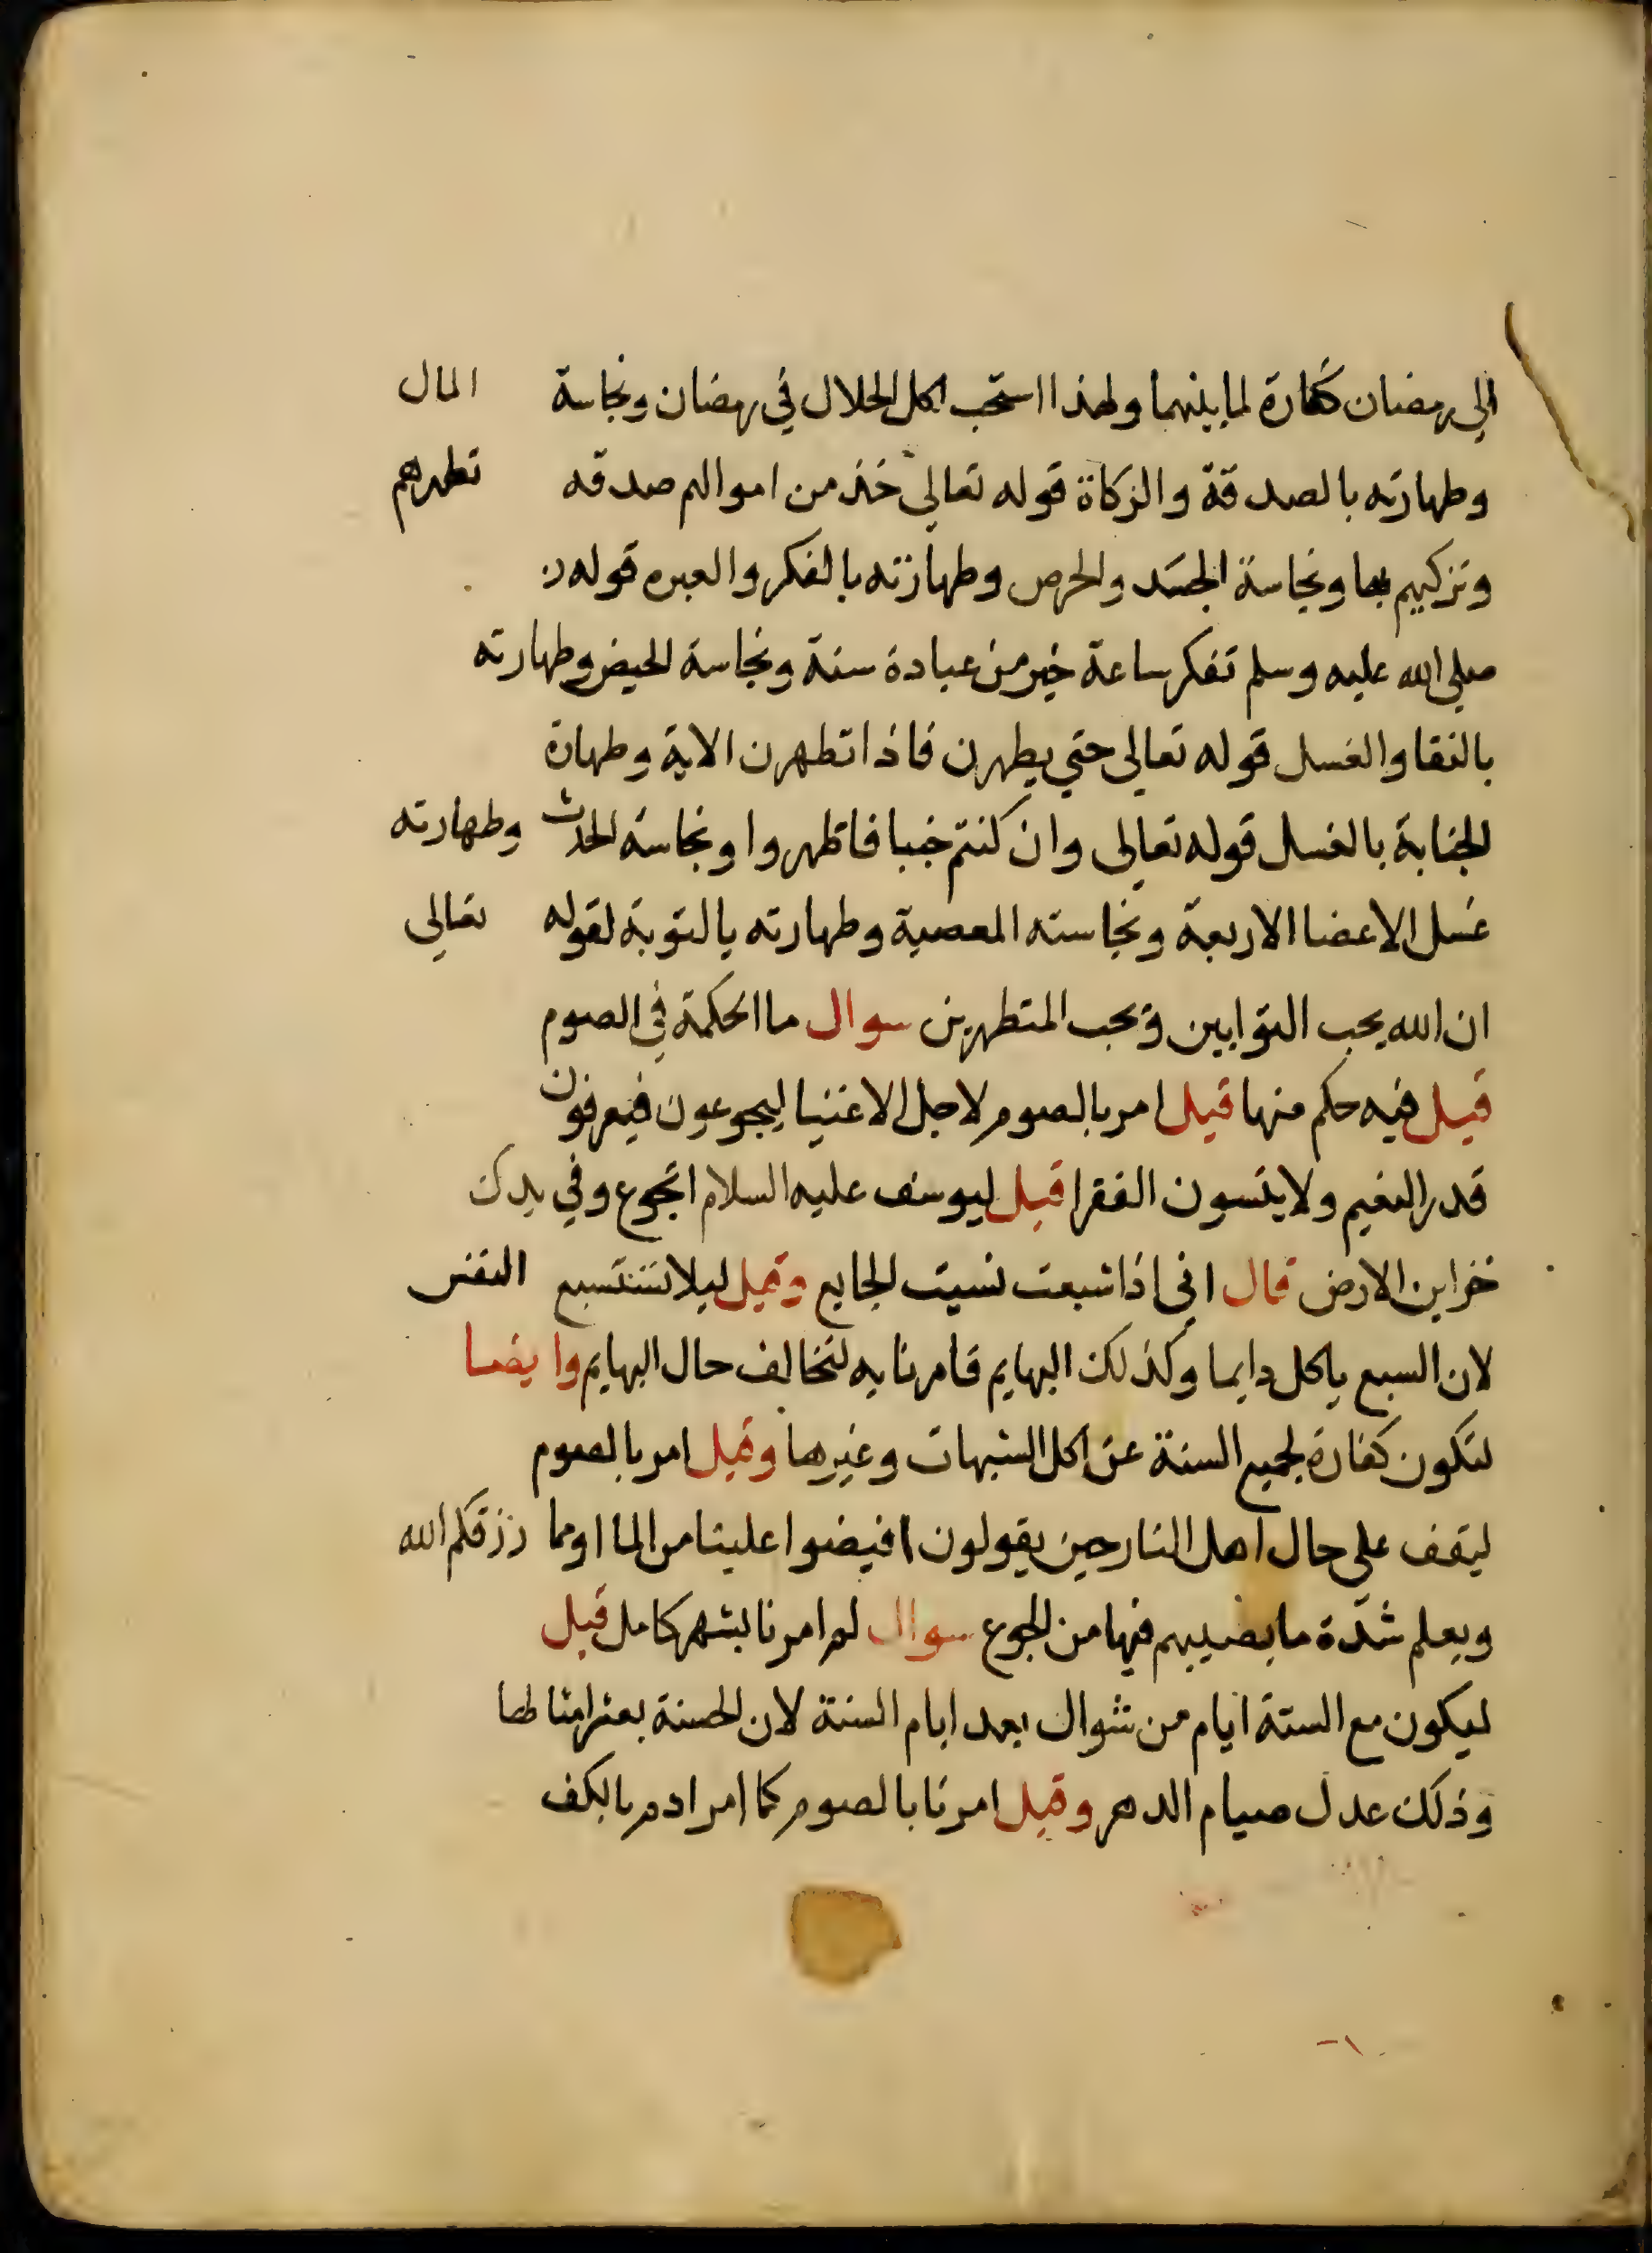 الي رمضان كفارة لما بينهما ولهذا استحب اكل الحلال في رمضان ونجاسة المال
وطهارته بالصدقة والزكاة قوله تعالي خذ من اموالهم صدقه تطهرهم
وتزكيهم بها ونجاسة الجسد والحرص وطهارته بالفكر والعبره قوله
صلي الله عليه وسلم تفكر ساعة خير من عبادة سنة ونجاسة الحيض وطهارته
بالنقا والغسل قوله تعالي حتي يطهرن فاذا تطهرن الاية وطهارة
الجنابة بالغسل قوله تعالي وان كنتم جنبا فاطهروا ونجاسة الحدث وطهارته
غسل الاعضا الاربعة ونجاسته المعصية وطهارته بالتوبة لقوله تعالي
ان الله يحب التوابين ويحب المتطهرين سوال ما الحكمة في الصوم
قيل فيه حكم منها قيل امر بالصوم لاجل الاغنيا ليجوعون فيعرفون
قدر النعيم ولا ينسون الفقرا قيل ليوسف عليه السلام اتجوع وفي يدك
خزاين الارض قال اني اذا شبعت نسيت الجايع وقيل ليلا تستسبع النفس
لان السبع ياكل دايما وكذلك البهايم فامرنا به لتخالف حال البهايم وايضا
لتكون كفارة لجميع السنة عن اكل الشبهات وغيرها وقيل امر بالصوم
ليقف علي حال اهل النار حين يقولون افيضوا علينا من الما او مما رزقكم الله
ويعلم شدة ما يصيبهم فيها من الجوع سوال لم امرنا بشهر كامل قيل
ليكون مع الستة ايام من شوال بعد ايام السنة لان الحسنة بعشر امثالها
وذلك عدل صيام الدهر وقيل امرنا بالصوم كما امر ادم بالكف